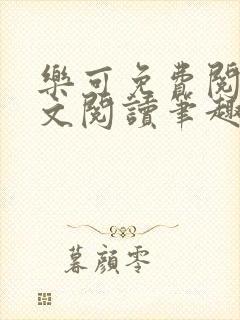 樂可免費閱
文閱讀筆趣
暮顏零